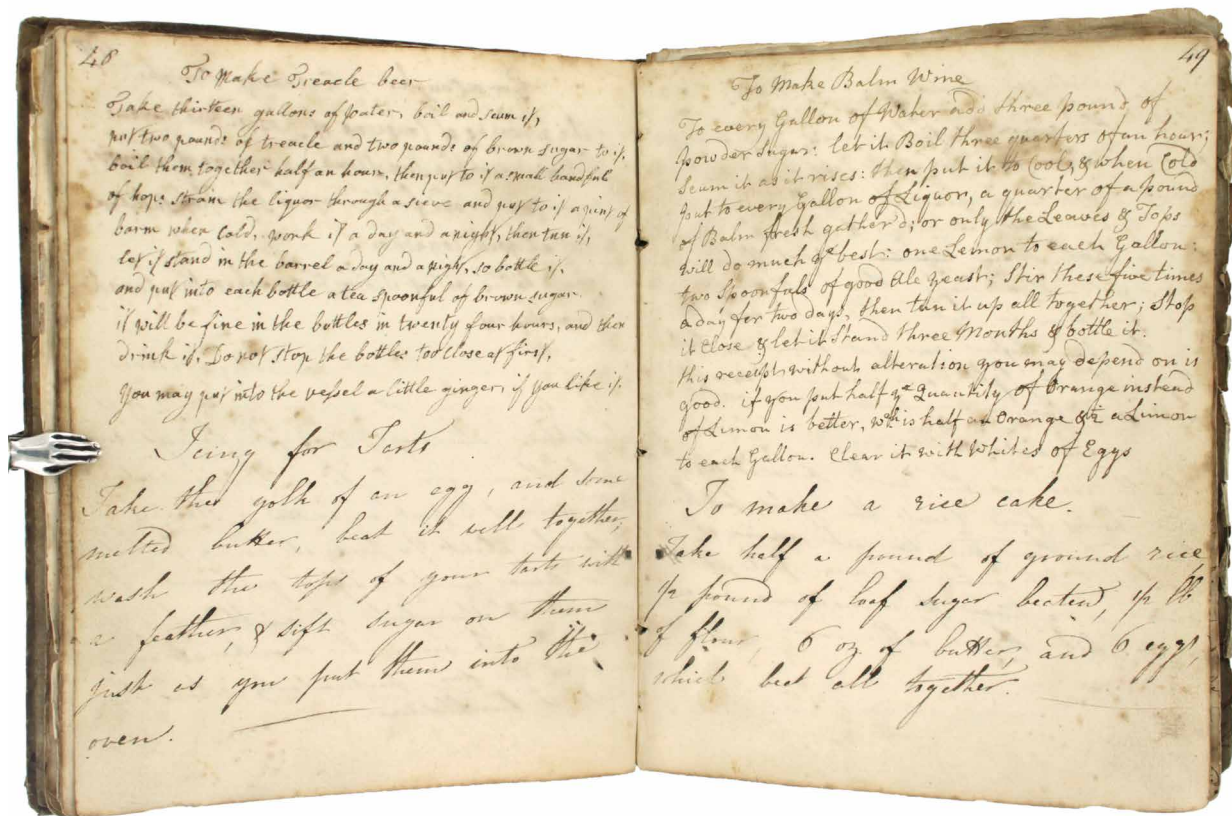 48
To Make Treacle beer
Take thirteen gallons of water, boil and scum it,
put two pounds of treacle and two pounds of brown sugar to it.
boil them together half an hour, then put to it a small handful
of hops strain the liquor through a sieve and put to it a pint of
barm when cold, work it a day and a night, then tun it,
let it stand in the barrel a day and a night, so bottle it.
and put into each bottle a tea spoonful of brown sugar.
it will be fine in the bottles in twenty four hours, and then
drink it. Do not stop the bottles too close at first,
You may put into the vessel a little ginger, if you like it.
Icing for Tarts
Take the yolk of an egg, and some
melted butter, beat it well together,
wash the tops of your tarts with
a feather, & sift sugar on them
just as you put them into the
oven.
49
To Make Balm Wine
To every Gallon of Water add three pound of
powder Sugar: let it Boil three quarters of an hour;
Scum it as it rises: then put it to Cool, & when Cold
put to every Gallon of Liquor, a quarter of a pound
of Balm fresh gather'd, or only the Leaves & Tops
will do much ye best: one Lemon to each Gallon:
two Spoonfuls of good Ale yeast; Stir these five times
a day for two days, then tun it up all together; Stop
it Close & let it Stand three Months & bottle it.
this receipt without alteration you may depend on is
good. if you put half ye Quantity of Orange instead
of Limon is better, wch is half an Orange & ½ a Limon
to each Gallon. Clear it with Whites of Eggs
To make a rice cake.
Take half a pound of ground rice
½ pound of loaf sugar beaten, ½ lb
of flour, 6 oz of butter, and 6 eggs,
which beat all together.